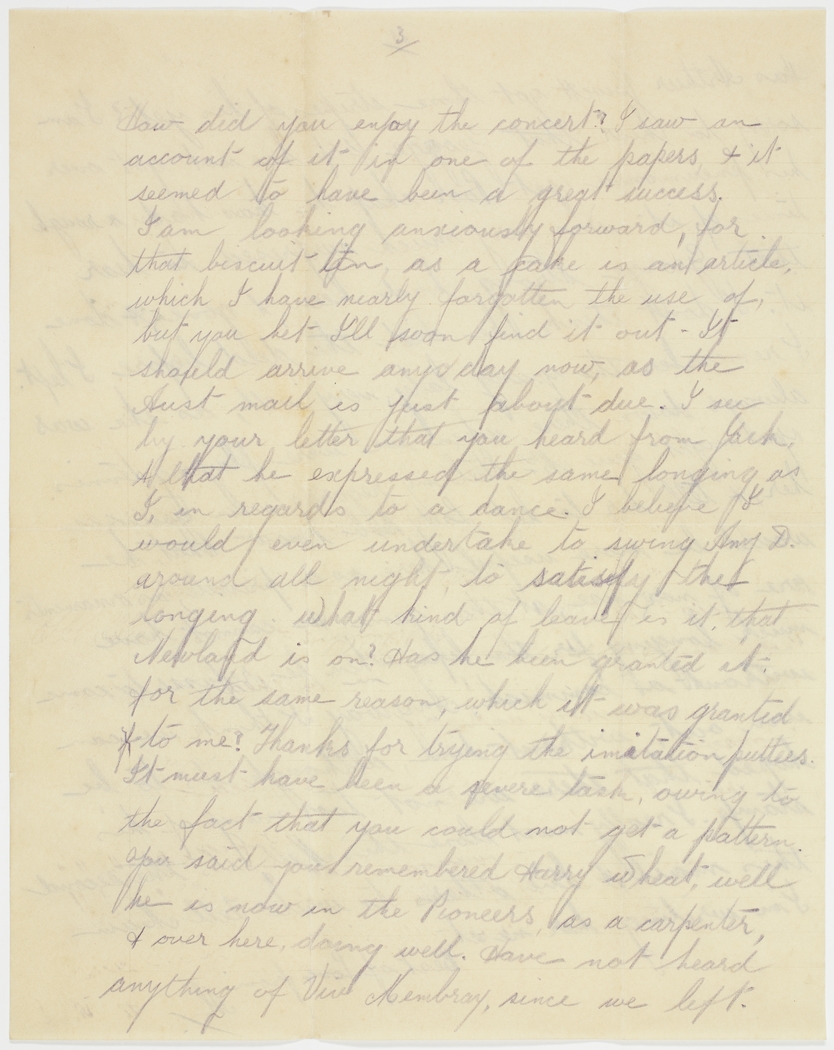 3
How did you enjoy the concert? I saw an
account of it in one of the papers & it
seemed to have been a great success.
I am looking anxiously forward, for
that biscuit tin, as a cake is an article,
which I have nearly forgotten the use of,
but you bet I'll soon find it out - It
should arrive any day now, as the
Aust mail is just about due. I see
by your letter that you heard from Jack,
& that he expressed the same longing as
I, in regards to a dance. I believe I
would even undertake to swing Amy D.
around all night, to satisfy the
longing. What kind of leave is it, that
Newland is on? Has he been granted it,
for the same reason, which it was granted
to me? Thanks for trying the imitation putties.
It must have been a severe task, owing to
the fact that you could not get a pattern.
You said you remembered Harry Wheat, well
he is now in the Pioneers, as a carpenter,
& over here, doing well. Have not heard
anything of Viv Membray, since we left.